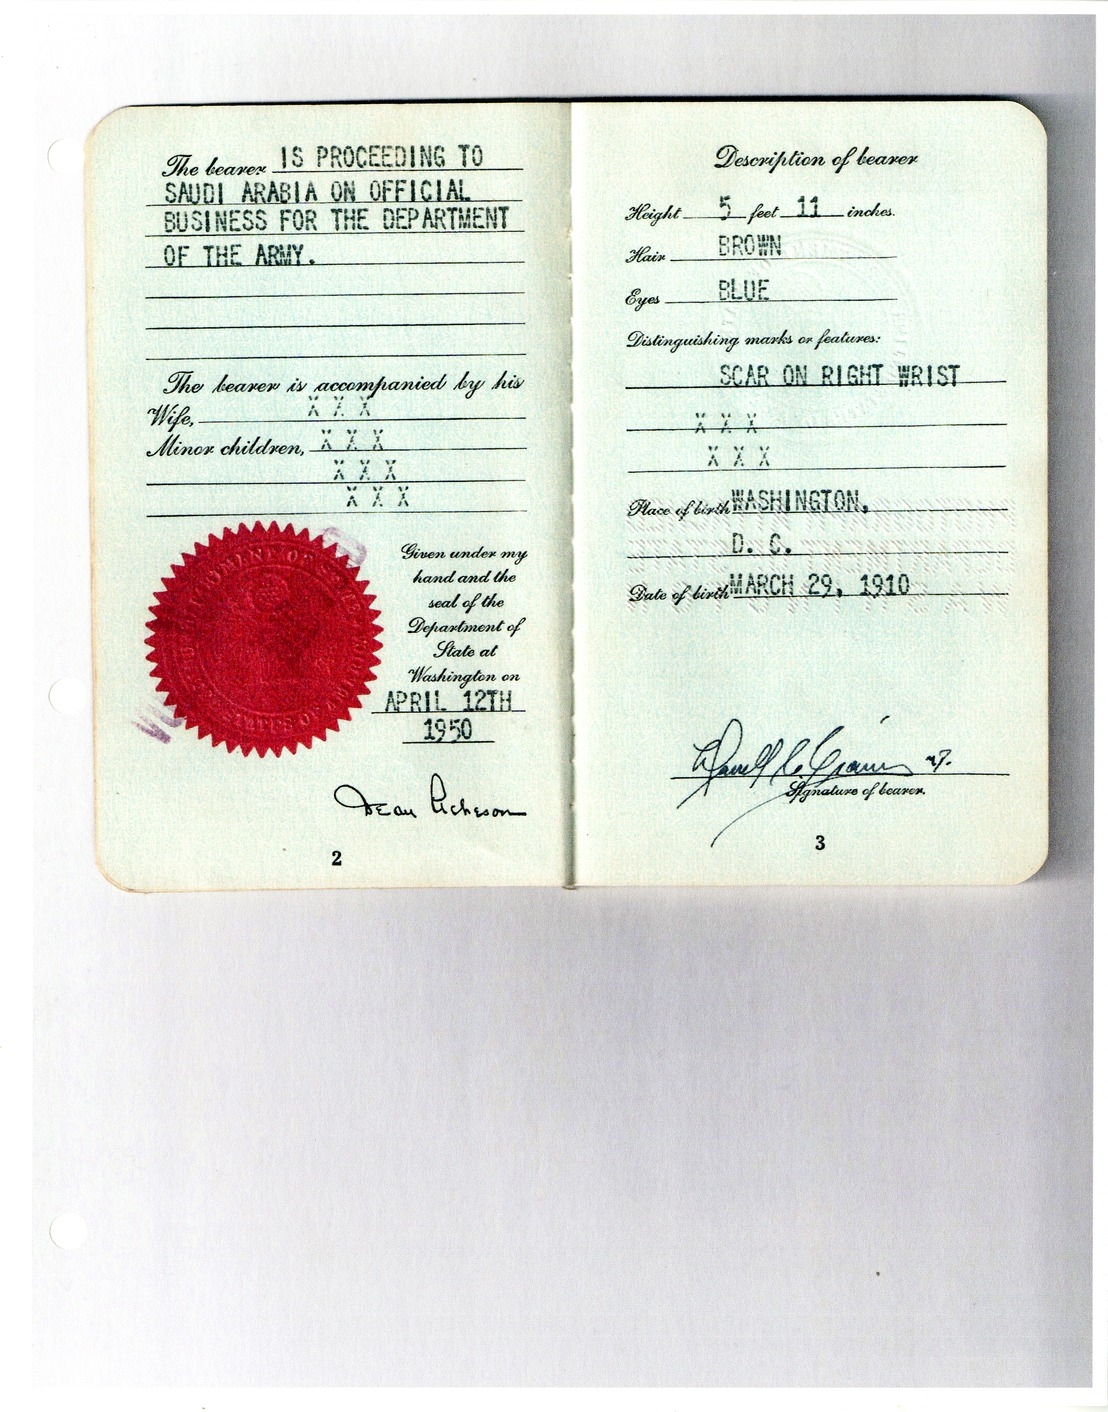 The bearer IS PROCEEDING TO
SAUDI ARABIA ON OFFICIAL
BUSINESS FOR THE DEPARTMENT
OF THE ARMY.
The bearer is accompanied by his
Wife, X X X
Minor children, X X X
X X X
X X X
Given under my
hand and the
seal of the
Department of
State at
Washington on
APRIL 12TH
1950
Dean Acheson
2
Description of bearer
Height 5 feet 11 inches.
Hair BROWN
Eyes BLUE
Distinguishing marks or features:
SCAR ON RIGHT WRIST
X X X
X X X
Place of birth WASHINGTON,
D. C.
Date of birth MARCH 29, 1910
Signature of bearer.
3